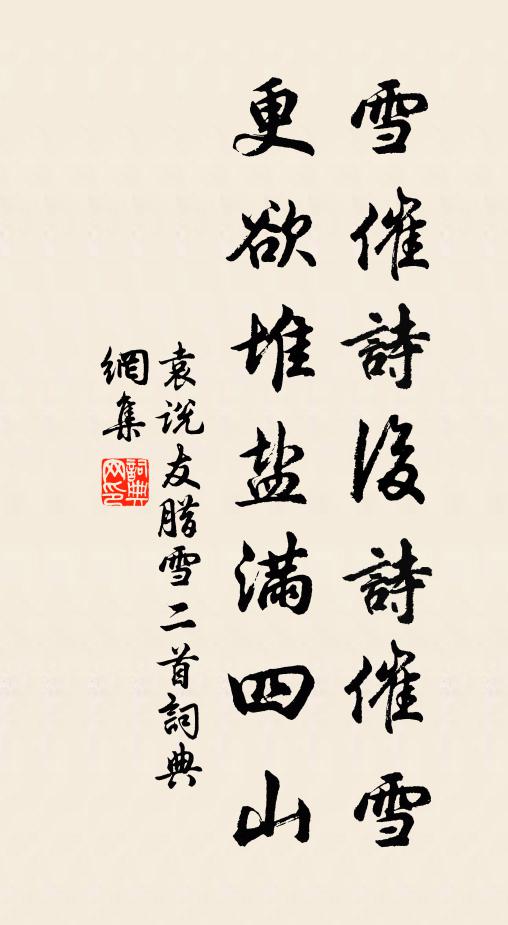 雪催詩後詩催雪
更欲堆盐滿四山
袁說友腊雪二首詞典
網集
詞典網印